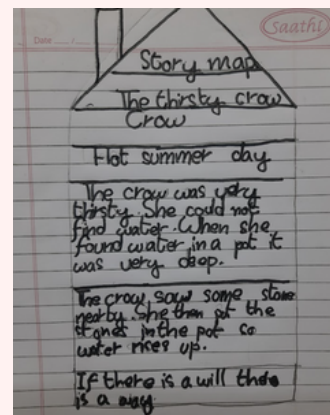 Saathi
Date ..../..../....
Story map
The thirsty crow
Crow
Hot summer day
The crow was very
thirsty. She could not
find water. When she
found water in a pot it
was very deep.
The crow saw some stone
nearby. She then put the
stones in the pot so
water rises up.
If there is a will there
is a way